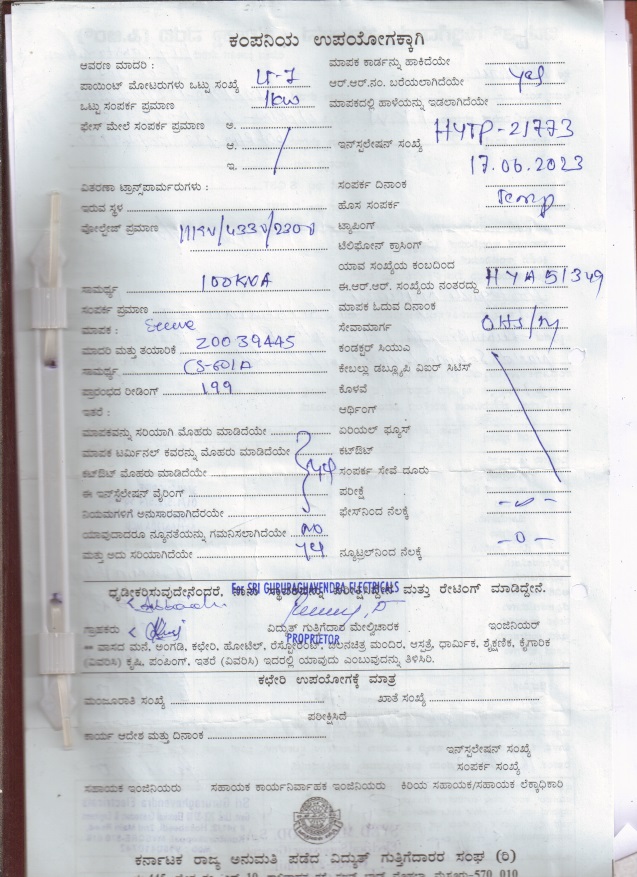 ಕಂಪನಿಯ ಉಪಯೋಗಕ್ಕಾಗಿ
ಆವರಣ ಮಾದರಿ :
ಮಾಪಕ ಕಾರ್ಡನ್ನು ಹಾಕಿದೆಯೇ
ಪಾಯಿಂಟ್ ಮೋಟರುಗಳು ಒಟ್ಟು ಸಂಖ್ಯೆ LT-7
ಆರ್.ಆರ್.ನಂ. ಬರೆಯಲಾಗಿದೆಯೇ yes
ಒಟ್ಟು ಸಂಪರ್ಕ ಪ್ರಮಾಣ 1kw
ಮಾಪಕದಲ್ಲಿ ಹಾಳೆಯನ್ನು ಇಡಲಾಗಿದೆಯೇ
ಫೇಸ್ ಮೇಲೆ ಸಂಪರ್ಕ ಪ್ರಮಾಣ ಅ.
ಆ.
ಇನ್‌ಸ್ಟಲೇಷನ್ ಸಂಖ್ಯೆ HYTP-21773
ಇ.
17.06.2023
ವಿತರಣಾ ಟ್ರಾನ್ಸ್‌ಪಾರ್ಮರುಗಳು :
ಸಂಪರ್ಕ ದಿನಾಂಕ
ಇರುವ ಸ್ಥಳ
ಹೊಸ ಸಂಪರ್ಕ Temp
ವೋಲ್ಟೇಜ್ ಪ್ರಮಾಣ 11KV/433V/230V
ಟ್ಯಾಪಿಂಗ್
ಟೆಲಿಫೋನ್ ಕ್ರಾಸಿಂಗ್
ಯಾವ ಸಂಖ್ಯೆಯ ಕಂಬದಿಂದ
ಸಾಮರ್ಥ್ಯ 100KVA
ಈ.ಆರ್.ಆರ್. ಸಂಖ್ಯೆಯ ನಂತರದ್ದು HYA51349
ಸಂಪರ್ಕ ಪ್ರಮಾಣ
ಮಾಪಕ ಓದುವ ದಿನಾಂಕ
ಮಾಪಕ :
ಸೇವಾಮಾರ್ಗ
ಮಾದರಿ ಮತ್ತು ತಯಾರಿಕೆ 20039445
ಕಂಡಕ್ಟರ್ ಸಿಯುಎ
ಸಾಮರ್ಥ್ಯ
ಕೇಬಲ್ಲು ಡಬ್ಲ್ಯೂಪಿ ವಿಐಆರ್ ಸಿಟಿಸ್
ಪ್ರಾರಂಭದ ರೀಡಿಂಗ್ 199
ಕೊಳವೆ
ಇತರೆ :
ಆರ್ಥಿಂಗ್
ಮಾಪಕವನ್ನು ಸರಿಯಾಗಿ ಮೊಹರು ಮಾಡಿದೆಯೇ
ಏರಿಯಲ್ ಫ್ಯೂಸ್
ಮಾಪಕ ಟರ್ಮಿನಲ್ ಕವರನ್ನು ಮೊಹರು ಮಾಡಿದೆಯೇ
ಕಟ್‌ಔಟ್
ಕಟ್‌ಔಟ್ ಮೊಹರು ಮಾಡಿದೆಯೇ yes
ಸಂಪರ್ಕ ಸೇವೆ ದೂರು
ಈ ಇನ್‌ಸ್ಟಲೇಷನ್ ವೈರಿಂಗ್
ಪರೀಕ್ಷೆ
ನಿಯಮಗಳಿಗೆ ಅನುಸಾರವಾಗಿದೆರಯೇ
ಫೇಸ್‌ನಿಂದ ನೆಲಕ್ಕೆ
ಯಾವುದಾದರೂ ನ್ಯೂನತೆಯನ್ನು ಗಮನಿಸಲಾಗಿದೆಯೇ NO
ಮತ್ತು ಅದು ಸರಿಯಾಗಿದೆಯೇ yes
ನ್ಯೂಟ್ರಲ್‌ನಿಂದ ನೆಲಕ್ಕೆ -0-
ಧೃಡೀಕರಿಸುವುದೇನೆಂದರೆ, ಮತ್ತು ರೇಟಿಂಗ್ ಮಾಡಿದ್ದೇನೆ.
For SRI GURURAGHAVENDRA ELECTRICALS
ಗ್ರಾಹಕರು ವಿದ್ಯುತ್ ಗುತ್ತಿಗೆದಾರ ಮೇಲ್ವಿಚಾರಕ ಇಂಜಿನಿಯರ್
PROPRIETOR
== ವಾಸದ ಮನೆ, ಅಂಗಡಿ, ಕಛೇರಿ, ಹೋಟೆಲ್, ರೆಸ್ಟೋರೆಂಟ್, ಚಲನಚಿತ್ರ ಮಂದಿರ, ಆಸ್ಪತ್ರೆ, ಧಾರ್ಮಿಕ, ಶೈಕ್ಷಣಿಕ, ಕೈಗಾರಿಕೆ
(ವಿವರಿಸಿ) ಕೃಷಿ, ಪಂಪಿಂಗ್, ಇತರೆ (ವಿವರಿಸಿ) ಇದರಲ್ಲಿ ಯಾವುದು ಎಂಬುವುದನ್ನು ತಿಳಿಸಿರಿ.
ಕಛೇರಿ ಉಪಯೋಗಕ್ಕೆ ಮಾತ್ರ
ಮಂಜೂರಾತಿ ಸಂಖ್ಯೆ ಖಾತೆ ಸಂಖ್ಯೆ
ಪರೀಕ್ಷಿಸಿದೆ
ಕಾರ್ಯ ಆದೇಶ ಮತ್ತು ದಿನಾಂಕ
ಇನ್‌ಸ್ಟಲೇಷನ್ ಸಂಖ್ಯೆ
ಸಂಪರ್ಕ ಸಂಖ್ಯೆ
ಸಹಾಯಕ ಇಂಜಿನಿಯರು ಸಹಾಯಕ ಕಾರ್ಯನಿರ್ವಾಹಕ ಇಂಜಿನಿಯರು ಕಿರಿಯ ಸಹಾಯಕ/ಸಹಾಯಕ ಲೆಕ್ಕಾಧಿಕಾರಿ
ಕರ್ನಾಟಕ ರಾಜ್ಯ ಅನುಮತಿ ಪಡೆದ ವಿದ್ಯುತ್ ಗುತ್ತಿಗೆದಾರರ ಸಂಘ (ರಿ)